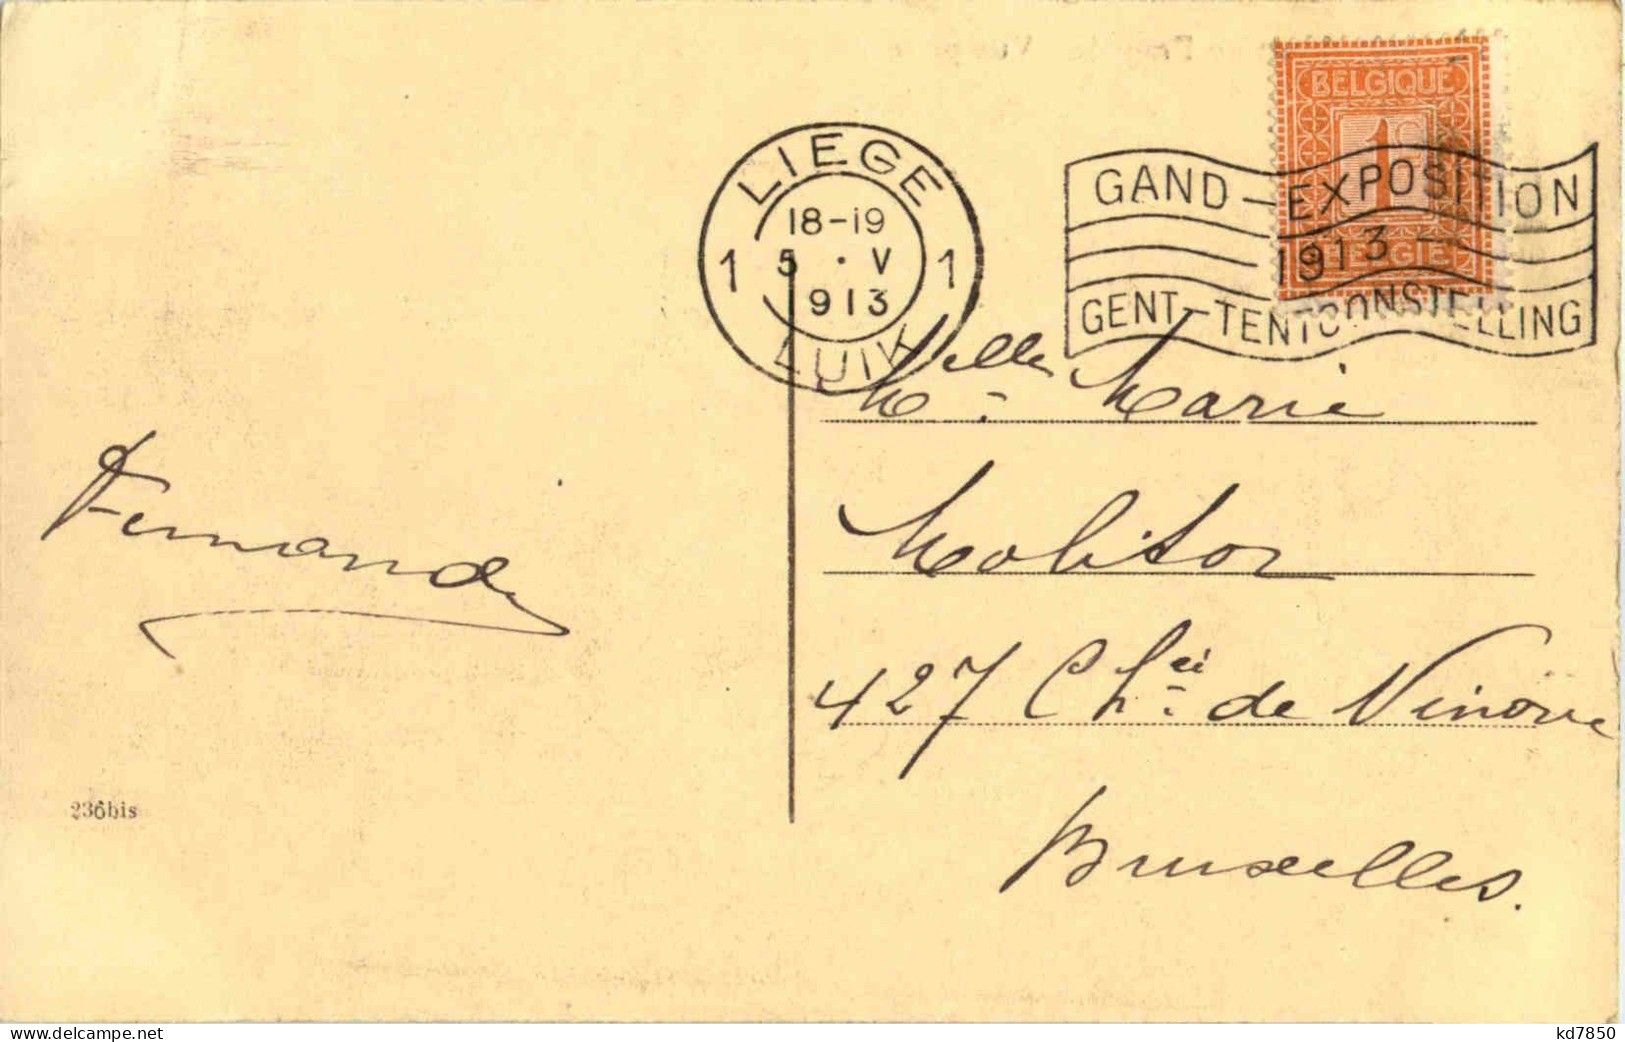 BELGIQUE
1c
BELGIE
LIEGE
18-19
1 5 · V 1
913
LUIK
GAND-EXPOSITION
1913
GENT-TENTOONSTELLING
Melle Marie
Molitor
427 Chéе de Ninove
Bruxelles.
Fernand
236bis
www.delcampe.net
kd7850